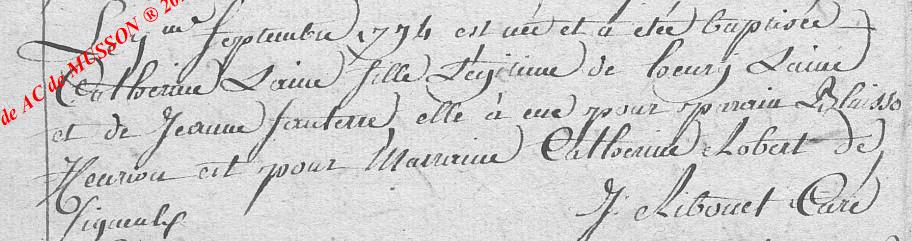 Le 9 me septembre 1794 est née et a étée baptisée
Catherine Laine fille Légitime de henry Laine
et de Jeanne fauterre elle à eue pour parain
Henrion et pour Marraine Catherine Robert de
Signeulx J. Ribouet Curé
de AC de MUSSON ®